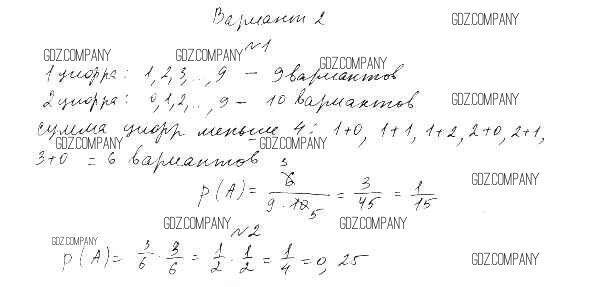 Вариант 2 GDZ.COMPANY
№1
GDZ.COMPANY GDZ.COMPANY GDZ.COMPANY
1 цифра: 1, 2, 3, .., 9 – 9 вариантов
2 цифра: 0, 1, 2, .., 9 – 10 вариантов GDZ.COMPANY
сумма цифр меньше 4: 1+0, 1+1, 1+2, 2+0, 2+1,
GDZ.COMPANY GDZ.COMPANY
3+0 = 6 вариантов
P(A) = 6 3 / 9·10 5 = 3/45 = 1/15 GDZ.COMPANY
GDZ.COMPANY GDZ.COMPANY
№2
GDZ.COMPANY
P(A) = 3/6 · 3/6 = 1/2 · 1/2 = 1/4 = 0,25 GDZ.COMPANY